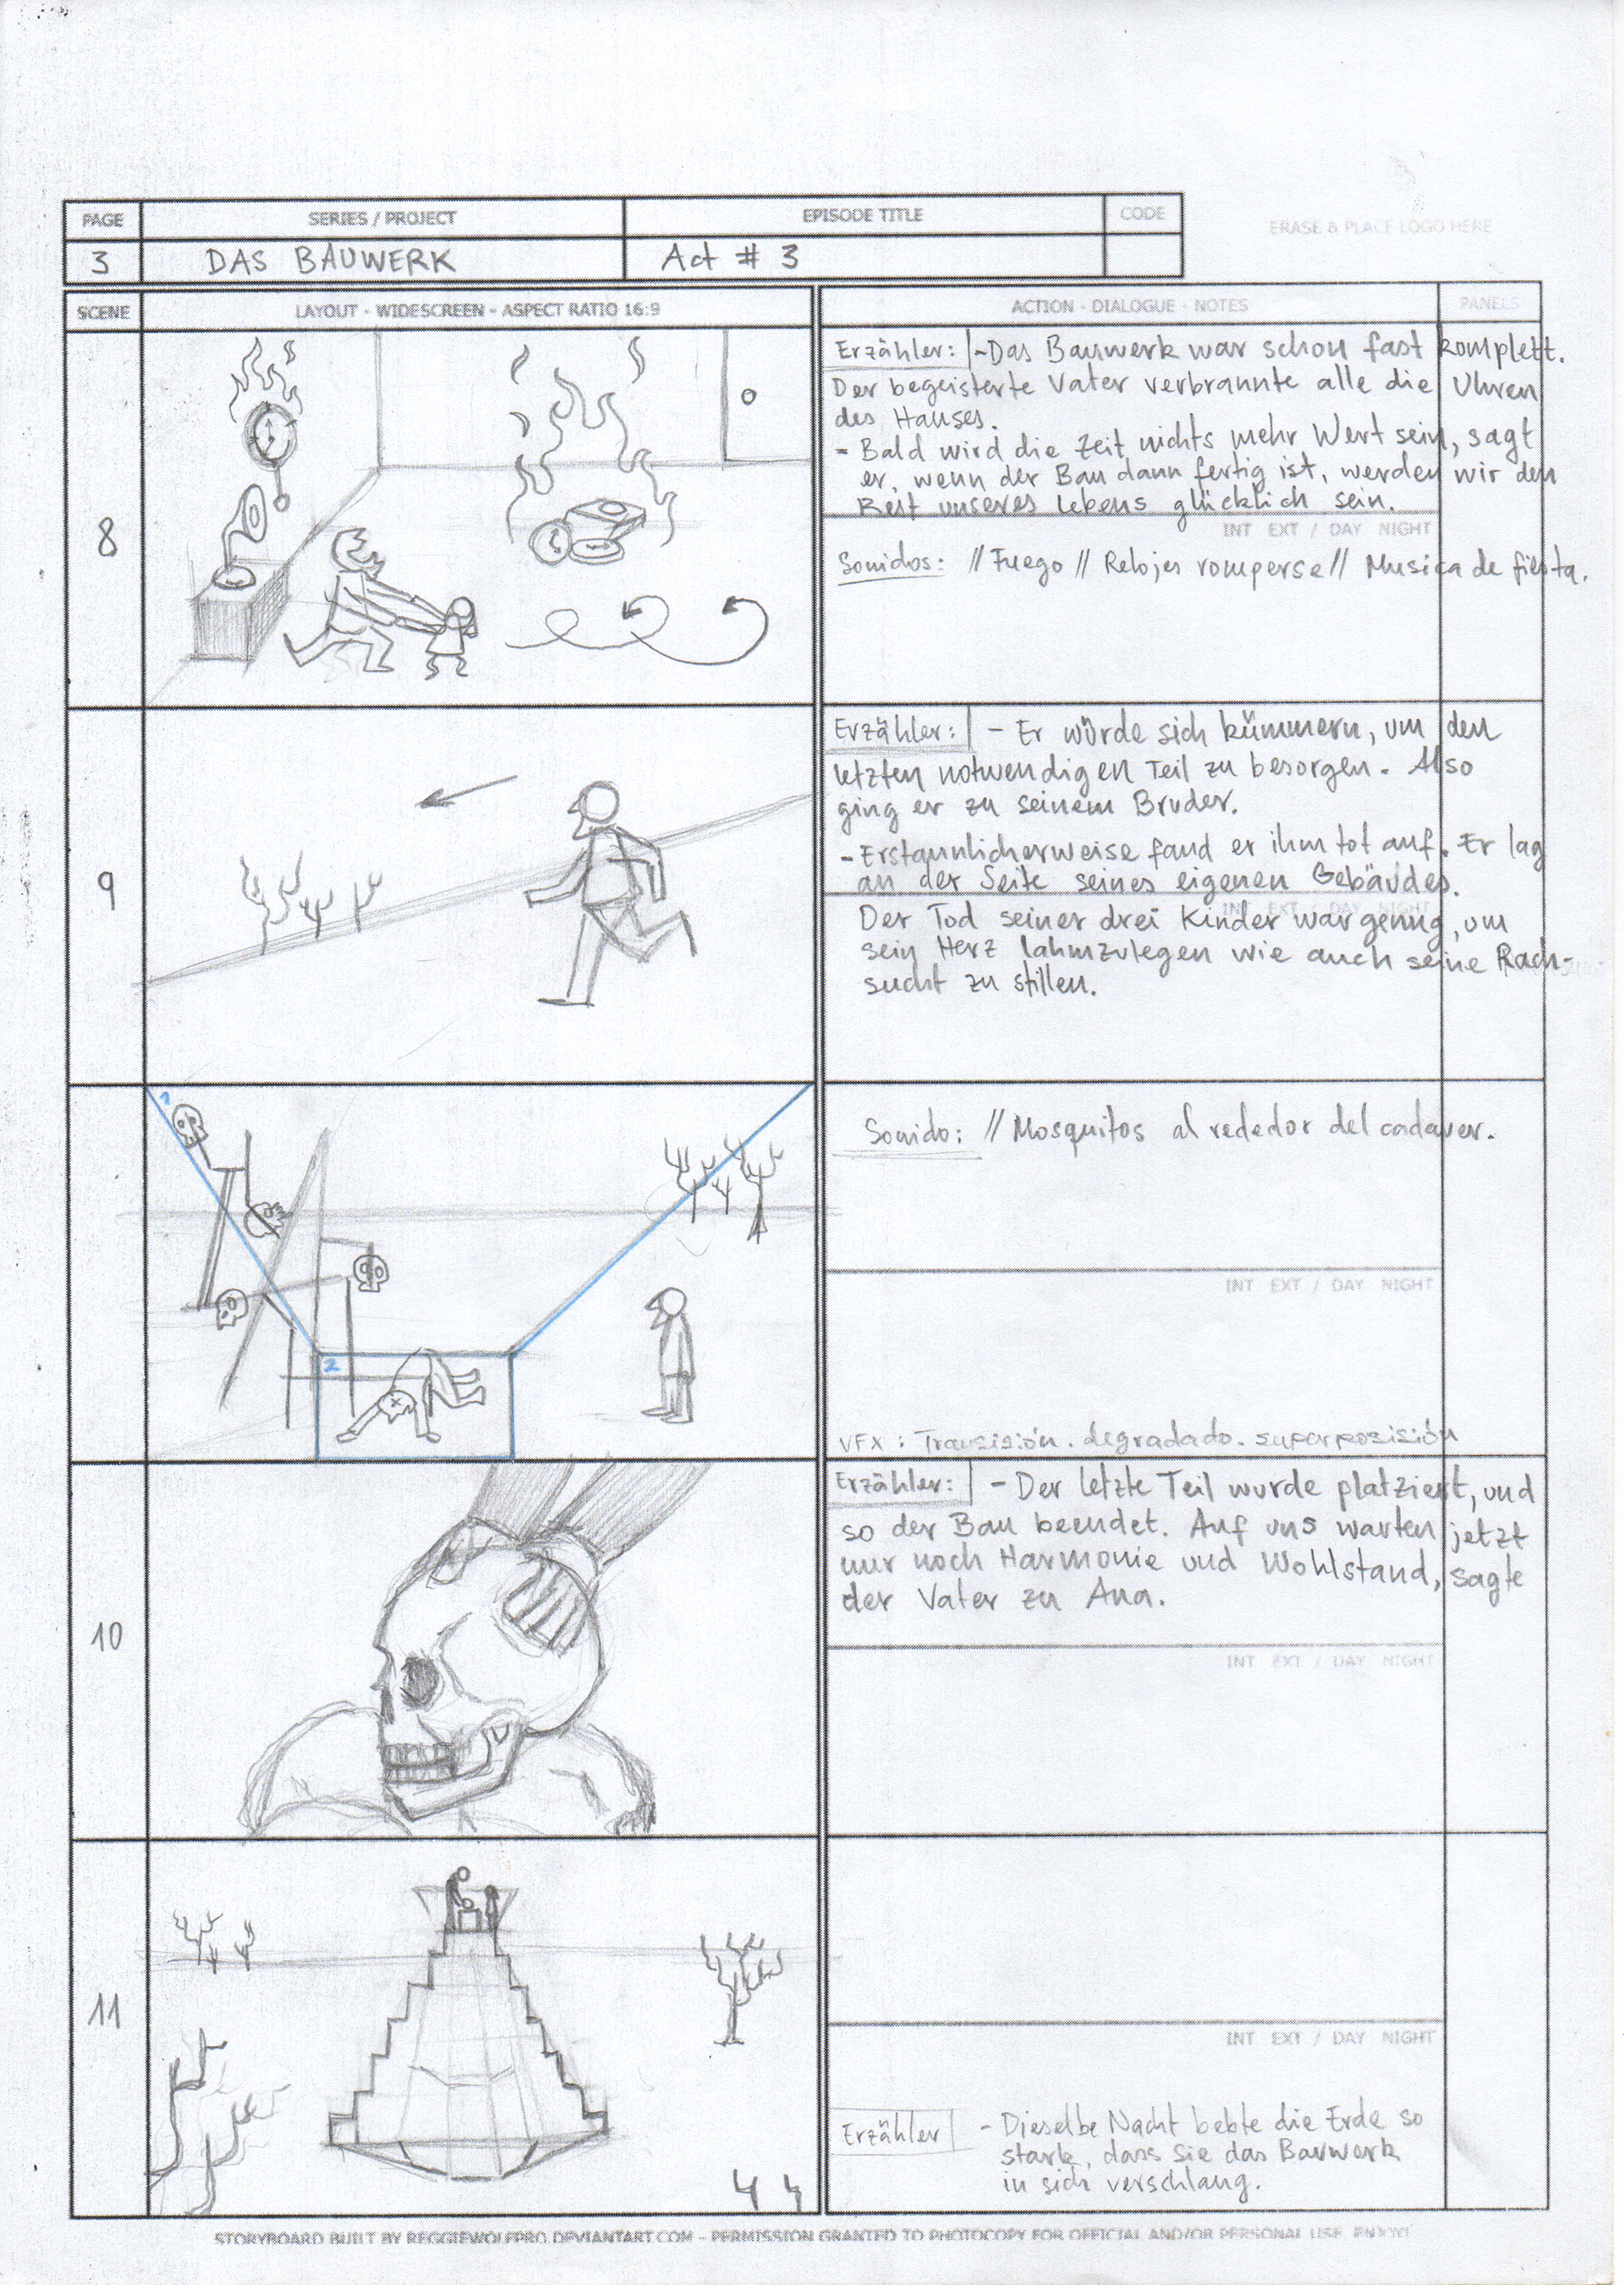 PAGE SERIES / PROJECT EPISODE TITLE CODE
ERASE & PLACE LOGO HERE
3 DAS BAUWERK Act # 3
SCENE LAYOUT - WIDESCREEN - ASPECT RATIO 16:9 ACTION - DIALOGUE - NOTES PANELS
8
Erzähler: -Das Bauwerk war schon fast komplett.
Der begeisterte Vater verbrannte alle die Uhren
des Hauses.
- Bald wird die Zeit nichts mehr Wert sein, sagt
er, wenn der Bau dann fertig ist, werden wir den
Rest unseres Lebens glücklich sein.
INT EXT / DAY NIGHT
Sonidos: // Fuego // Relojes romperse // Musica de fiesta.
9
Erzähler: - Er würde sich kümmern, um den
letzten notwendigen Teil zu besorgen. Also
ging er zu seinem Bruder.
-Erstaunlicherweise fand er ihm tot auf. Er lag
an der Seite seines eigenen Gebäudes.
INT EXT / DAY NIGHT
Der Tod seiner drei Kinder war genug, um
sein Herz lahmzulegen wie auch seine Rach-
sucht zu stillen.
1
2
Sonido: // Mosquitos al rededor del cadaver.
INT EXT / DAY NIGHT
VFX : Transisión. degradado. superposisión
10
Erzähler: - Der letzte Teil wurde platziert, und
so der Bau beendet. Auf uns warten jetzt
nur noch Harmonie und Wohlstand, sagte
der Vater zu Ana.
INT EXT / DAY NIGHT
11
INT EXT / DAY NIGHT
Erzähler - Dieselbe Nacht bebte die Erde so
stark, dass Sie das Bauwerk
in sich verschlang.
STORYBOARD BUILT BY REGGIEWOLFPRO.DEVIANTART.COM - PERMISSION GRANTED TO PHOTOCOPY FOR OFFICIAL AND/OR PERSONAL USE. ENJOY!